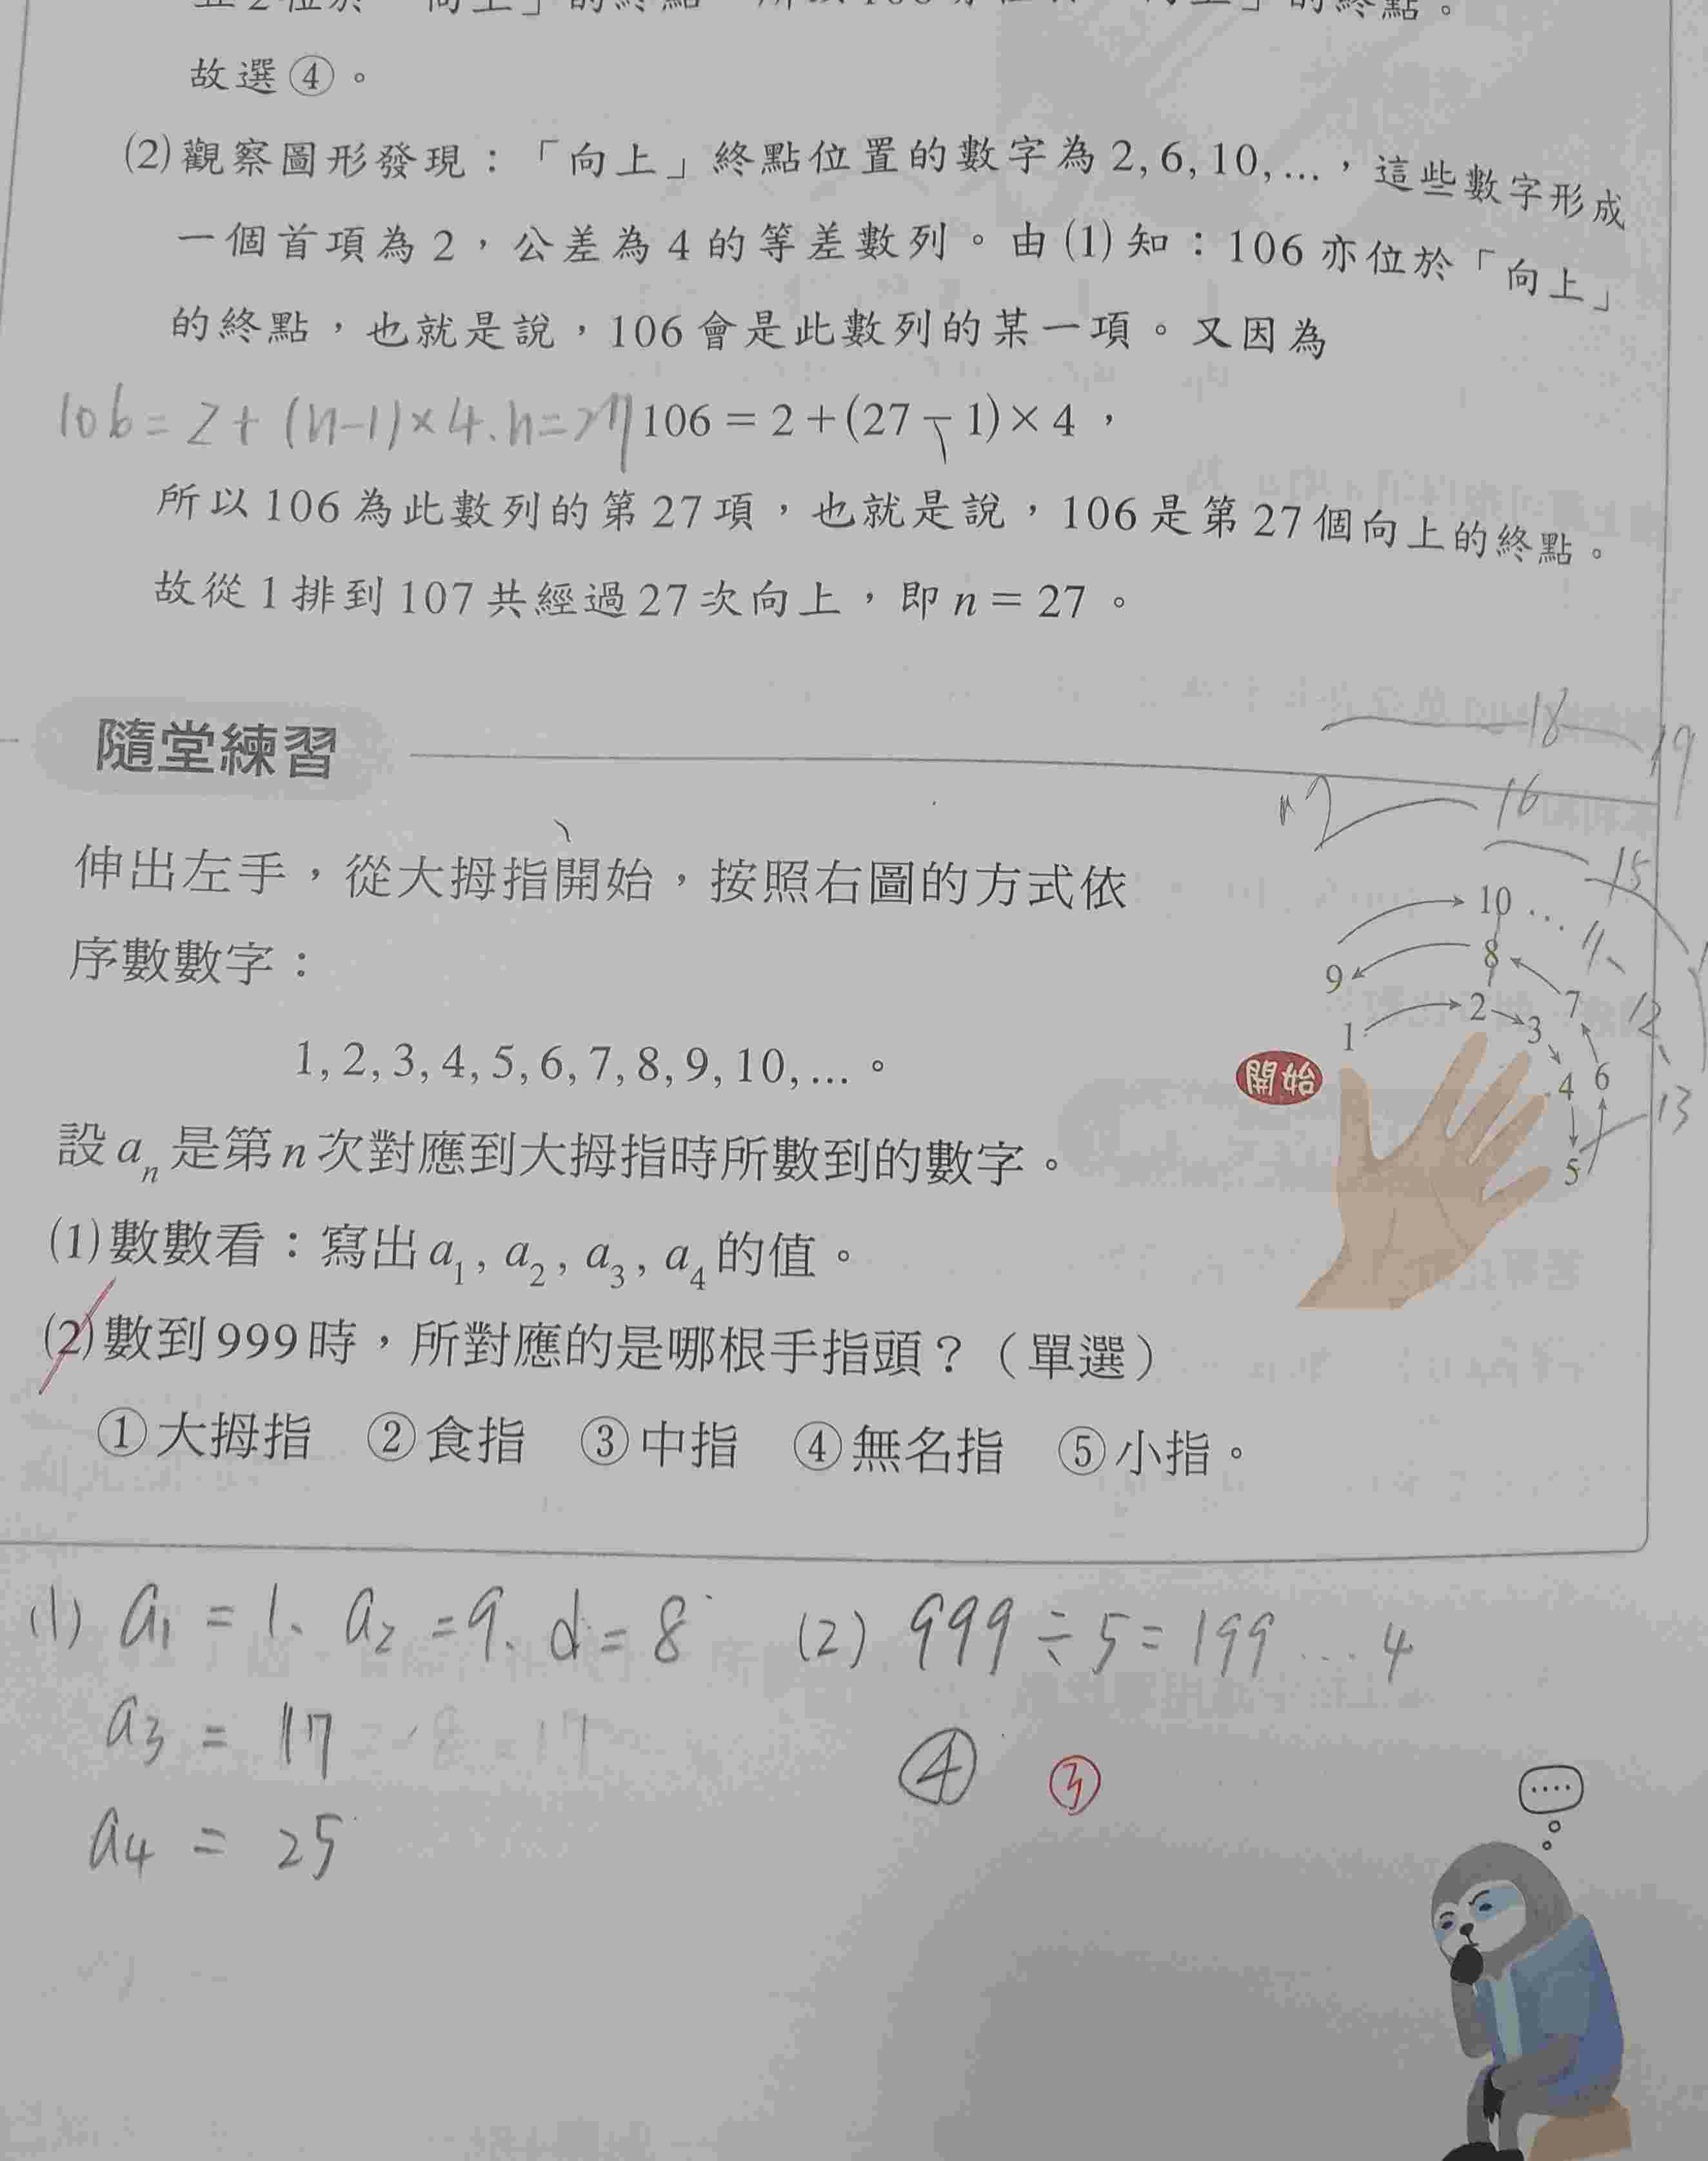 故選④。
(2)觀察圖形發現：「向上」終點位置的數字為2, 6, 10, …，這些數字形成
一個首項為2，公差為4的等差數列。由(1)知：106亦位於「向上」
的終點，也就是說，106會是此數列的某一項。又因為
106=2+(n-1)×4、n=27
106＝2＋(27－1)×4，
所以106為此數列的第27項，也就是說，106是第27個向上的終點。
故從1排到107共經過27次向上，即n＝27。
隨堂練習
伸出左手，從大拇指開始，按照右圖的方式依
序數數字：
1, 2, 3, 4, 5, 6, 7, 8, 9, 10, …。
設aₙ是第n次對應到大拇指時所數到的數字。
(1)數數看：寫出a₁, a₂, a₃, a₄的值。
(2)數到999時，所對應的是哪根手指頭？（單選）
①大拇指 ②食指 ③中指 ④無名指 ⑤小指。
18
19
16
15
10 …
11、
9
8
7
12、
1
2
3
開始
4
6
13
5
(1) a₁=1、a₂=9、d=8
a₃=17
a₄=25
(2) 999÷5=199…4
④
③
....